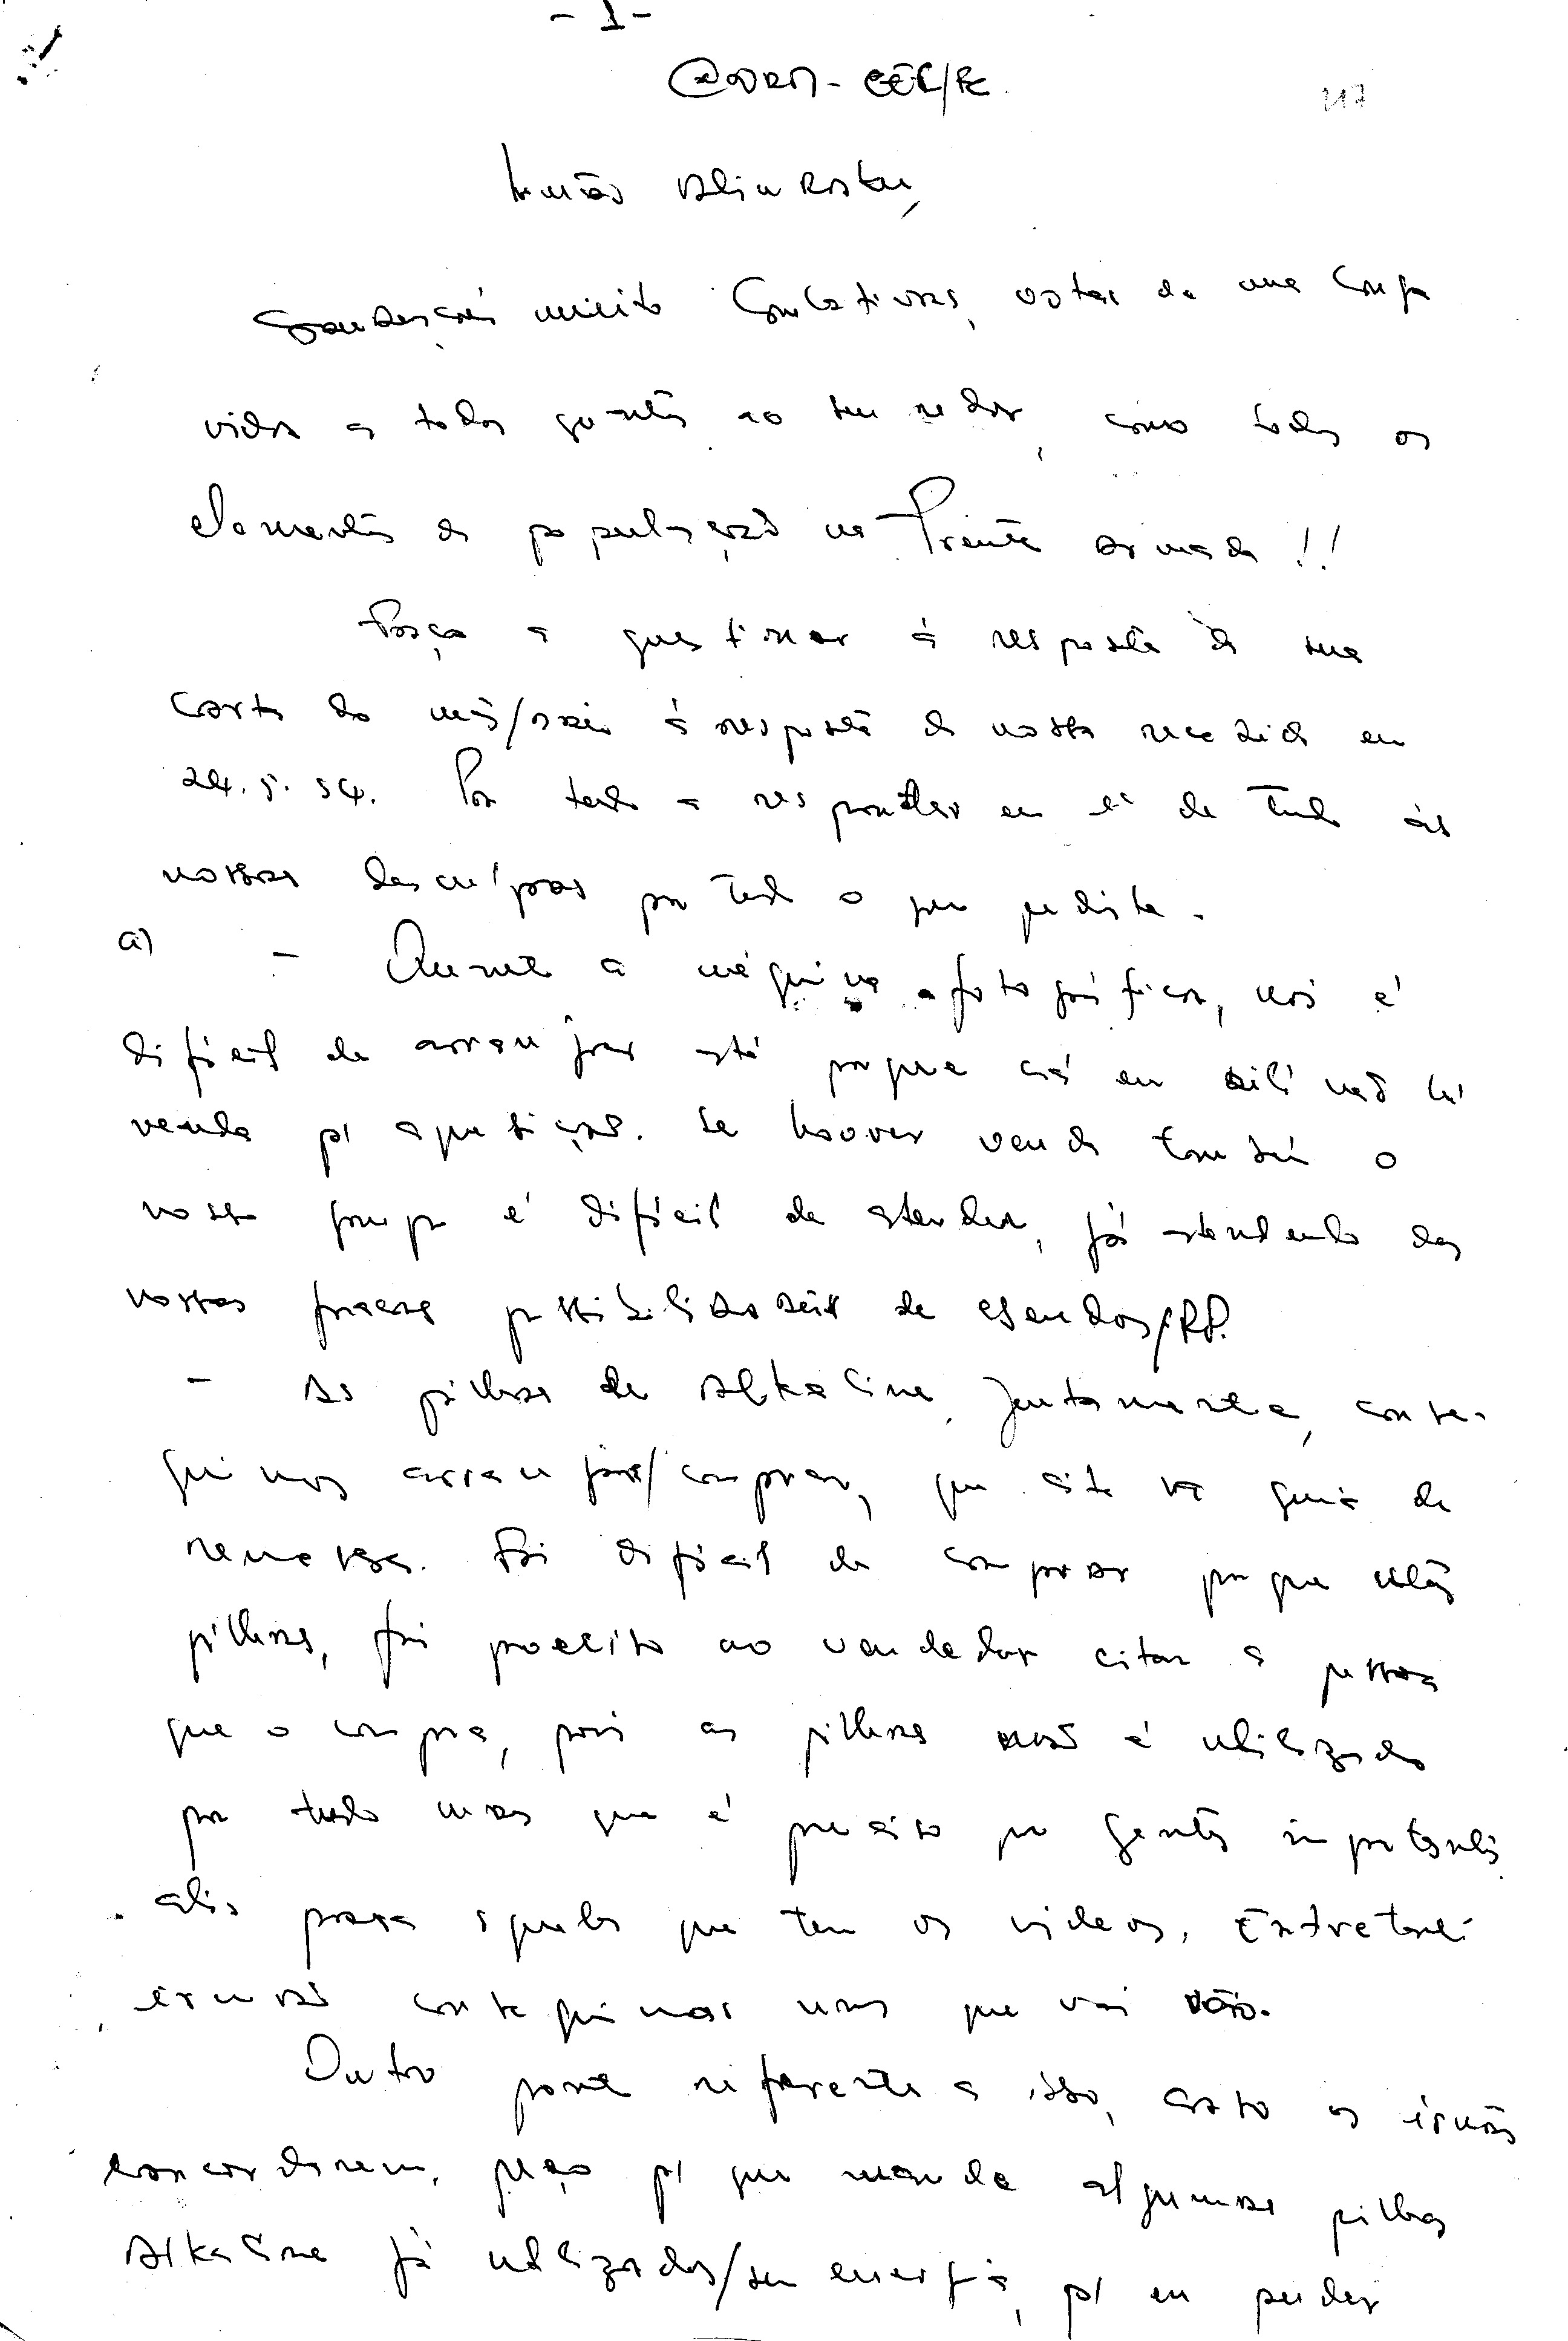 - 1 -
CNRM - CEL/FC.
117
Irmão Alin Ratau,
Saudações muito Combativas, votos de uma longa
vida a todos quantos ao seu redor, como todos os
elementos da população na Frente armada!!
Faço a questionar à resposta da sua
carta do mês/maio à resposta da nossa recebida em
24.5.94. Por tudo a responder em
nossas desculpas por tudo o que pediste.
a) - Quanto a máquina fotográfica, não é
difícil de arranjar até porque cá em Dili não há
venda p/ aquisição. Se houver venda também o
nosso grupo é difícil de atender, já atendendo das
nossas fracas possibilidades de escudos/RP.
- As pilhas de Alkaline, juntamente, conse-
guimos arranjar/comprar, que está na guia de
remessa. Foi difícil de comprar porque estas
pilhas, foi preciso ao vendedor citar a pessoa
que o compra, pois as pilhas não é utilizado
por tudo mas que é preciso por gentes importantes
aliás para aqueles que tem os videos. Entretanto
irmão conseguimos uns que vai vão.
Outro ponto referente a isso, caso os irmãos
concordarem, peço p/ que mande algumas pilhas
Alkaline já utilizados/sem energia, p/ eu poder